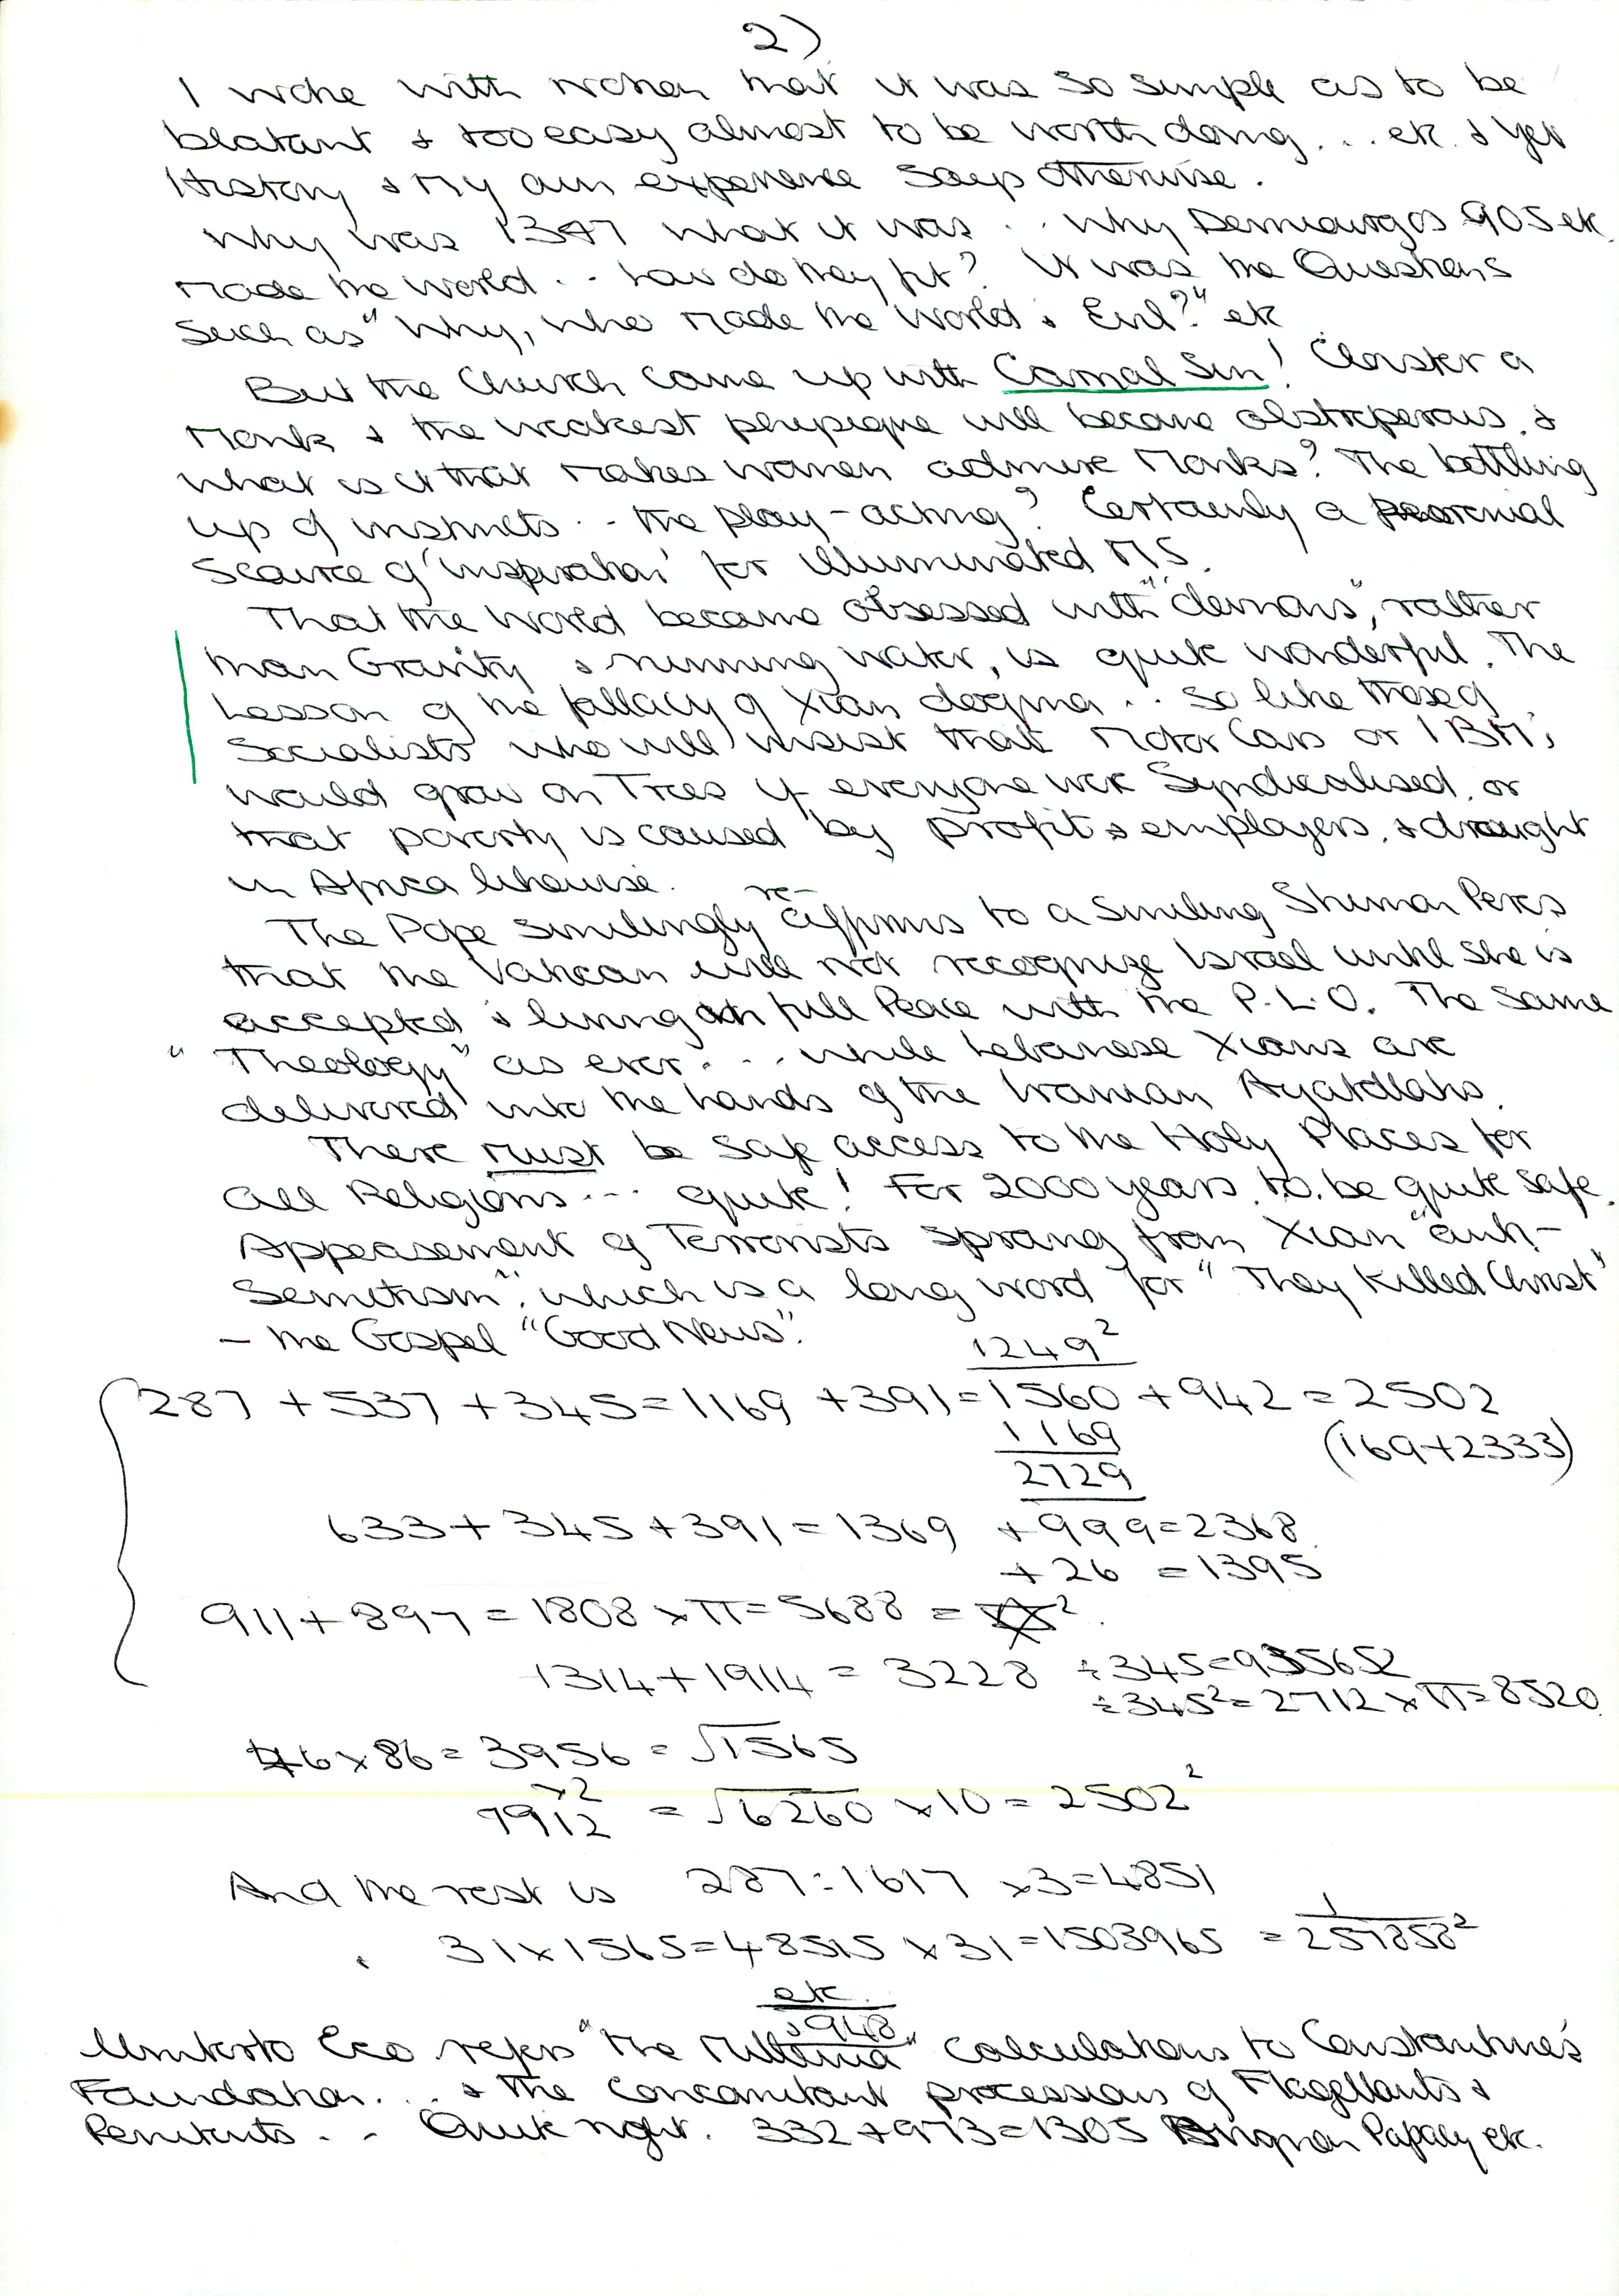 2)
I woke with notion that it was so simple as to be
blatant & too easy almost to be worth doing... etc. & yet
History & my own experience says otherwise.
Why was 1347 what it was .. Why Demiourgos 905 etc.
made the World .. how do they fit? It was the Questions
such as "Why, who made the World & Evil?" etc
But the Church came up with Carnal Sin! Cloister a
Monk & the weakest physique will become obstreperous. &
what is it that makes women admire Monks? The bottling
up of instincts .. the play-acting? Certainly a
Source of 'inspiration' for Illuminated MS.
That the World became obsessed with "demons", rather
than Gravity & running water, is quite wonderful. The
Lesson of the fallacy of Xian dogma .. so like those of
Socialists who will insist that Motor Cars or IBM's
would grow on Trees if everyone were Syndicalised, or
that poverty is caused by profit & employers, & drought
in Africa likewise.
The Pope smilingly re-affirms to a smiling Shimon Peres
that the Vatican will not recognize Israel until she is
accepted & living in full Peace with the P.L.O. The same
"Theology" as ever ... while Lebanese Xians are
delivered into the hands of the Iranian Ayatollahs.
There must be safe access to the Holy Places for
all Religions ... quite! For 2000 years, to be quite safe.
Appeasement of Terrorists sprang from Xian "anti-
Semitism", which is a long word for "They killed Christ"
– the Gospel "Good News".
1249²
287 + 537 + 345 = 1169 + 391 = 1560 + 942 = 2502
1169
(169+2333)
2729
633 + 345 + 391 = 1369 + 999 = 2368
+ 26 = 1395
911 + 897 = 1808 × π = 5688 =
1314 + 1914 = 3228 ÷ 345 = 935652
÷ 345² = 2712 × π = 8520
46 × 86 = 3956 = √1565
×2
7912 = √6260 × 10 = 2502²
And the rest is 287 : 1617 × 3 = 4851
31 × 1565 = 48515 × 31 = 1503965 = 1/257858²
etc.
3948
Umberto Eco refers "the Millennia" Calculations to Constantine's
Foundation ... & the concomitant processions of Flagellants &
Penitents .. Quite right. 332 + 973 = 1305 Avignon Papacy etc.